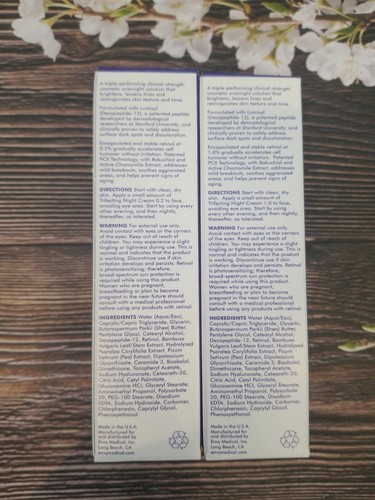 A triple-performing clinical strength
cosmetic overnight solution that
brightens, lessens lines and
reinvigorates skin texture and tone.
Formulated with Lumixyl
(Decapeptide-12), a patented peptide
developed by dermatological
researchers at Stanford University, and
clinically proven to safely address
surface dark spots and discoloration.
Encapsulated and stable retinal at
0.2% gradually accelerates cell
turnover without irritation. Patented
PCX Technology, with Bakuchiol and
Active Chamomile Extract, addresses
mild breakouts, soothes aggravated
areas, and helps prevent signs of
aging.
DIRECTIONS Start with clean, dry
skin. Apply a small amount of
Trifecting Night Cream 0.2 to face,
avoiding eye area. Start by using
every other evening, and then nightly,
thereafter, as tolerated.
WARNING For external use only.
Avoid contact with eyes or the corners
of the eyes. Keep out of reach of
children. You may experience a slight
tingling or tightness during use. This is
normal and indicates that the product
is working. Discontinue use if skin
irritation develops and persists. Retinal
is photosensitizing; therefore,
broad-spectrum sun protection is
required while using this product.
Women who are pregnant,
breastfeeding or plan to become
pregnant in the near future should
consult with a medical professional
before using any products with retinal.
INGREDIENTS Water (Aqua/Eau),
Caprylic/Capric Triglyceride, Glycerin,
Butyrospermum Parkii (Shea) Butter,
Pentylene Glycol, Cetearyl Alcohol,
Decapeptide-12, Retinal, Bambusa
Vulgaris Leaf/Stem Extract, Hydrolyzed
Psoralea Corylifolia Extract, Pisum
Sativum (Pea) Extract, Dipotassium
Glycyrrhizate, Ceramide 3, Bisabolol,
Dimethicone, Tocopheryl Acetate,
Sodium Hyaluronate, Ceteareth-20,
Citric Acid, Cetyl Palmitate,
Glucosamine HCl, Glyceryl Stearate,
Aminomethyl Propanol, Polysorbate
20, PEG-100 Stearate, Disodium
EDTA, Sodium Hydroxide, Carbomer,
Chlorphenesin, Caprylyl Glycol,
Phenoxyethanol.
Made in the U.S.A.
Manufactured for
and distributed by
Envy Medical, Inc.
Long Beach, CA
envymedical.com
A triple-performing clinical strength
cosmetic overnight solution that
brightens, lessens lines and
reinvigorates skin texture and tone.
Formulated with Lumixyl
(Decapeptide-12), a patented peptide
developed by dermatological
researchers at Stanford University, and
clinically proven to safely address
surface dark spots and discoloration.
Encapsulated and stable retinal at
1.0% gradually accelerates cell
turnover without irritation. Patented
PCX Technology, with Bakuchiol and
Active Chamomile Extract, addresses
mild breakouts, soothes aggravated
areas, and helps prevent signs of
aging.
DIRECTIONS Start with clean, dry
skin. Apply a small amount of
Trifecting Night Cream 1.0 to face,
avoiding eye area. Start by using
every other evening, and then nightly,
thereafter, as tolerated.
WARNING For external use only.
Avoid contact with eyes or the corners
of the eyes. Keep out of reach of
children. You may experience a slight
tingling or tightness during use. This is
normal and indicates that the product
is working. Discontinue use if skin
irritation develops and persists. Retinal
is photosensitizing; therefore,
broad-spectrum sun protection is
required while using this product.
Women who are pregnant,
breastfeeding or plan to become
pregnant in the near future should
consult with a medical professional
before using any products with retinal.
INGREDIENTS Water (Aqua/Eau),
Caprylic/Capric Triglyceride, Glycerin,
Butyrospermum Parkii (Shea) Butter,
Pentylene Glycol, Cetearyl Alcohol,
Decapeptide-12, Retinal, Bambusa
Vulgaris Leaf/Stem Extract, Hydrolyzed
Psoralea Corylifolia Extract, Pisum
Sativum (Pea) Extract, Dipotassium
Glycyrrhizate, Ceramide 3, Bisabolol,
Dimethicone, Tocopheryl Acetate,
Sodium Hyaluronate, Ceteareth-20,
Citric Acid, Cetyl Palmitate,
Glucosamine HCl, Glyceryl Stearate,
Aminomethyl Propanol, Polysorbate
20, PEG-100 Stearate, Disodium
EDTA, Sodium Hydroxide, Carbomer,
Chlorphenesin, Caprylyl Glycol,
Phenoxyethanol.
Made in the U.S.A.
Manufactured for
and distributed by
Envy Medical, Inc.
Long Beach, CA
envymedical.com